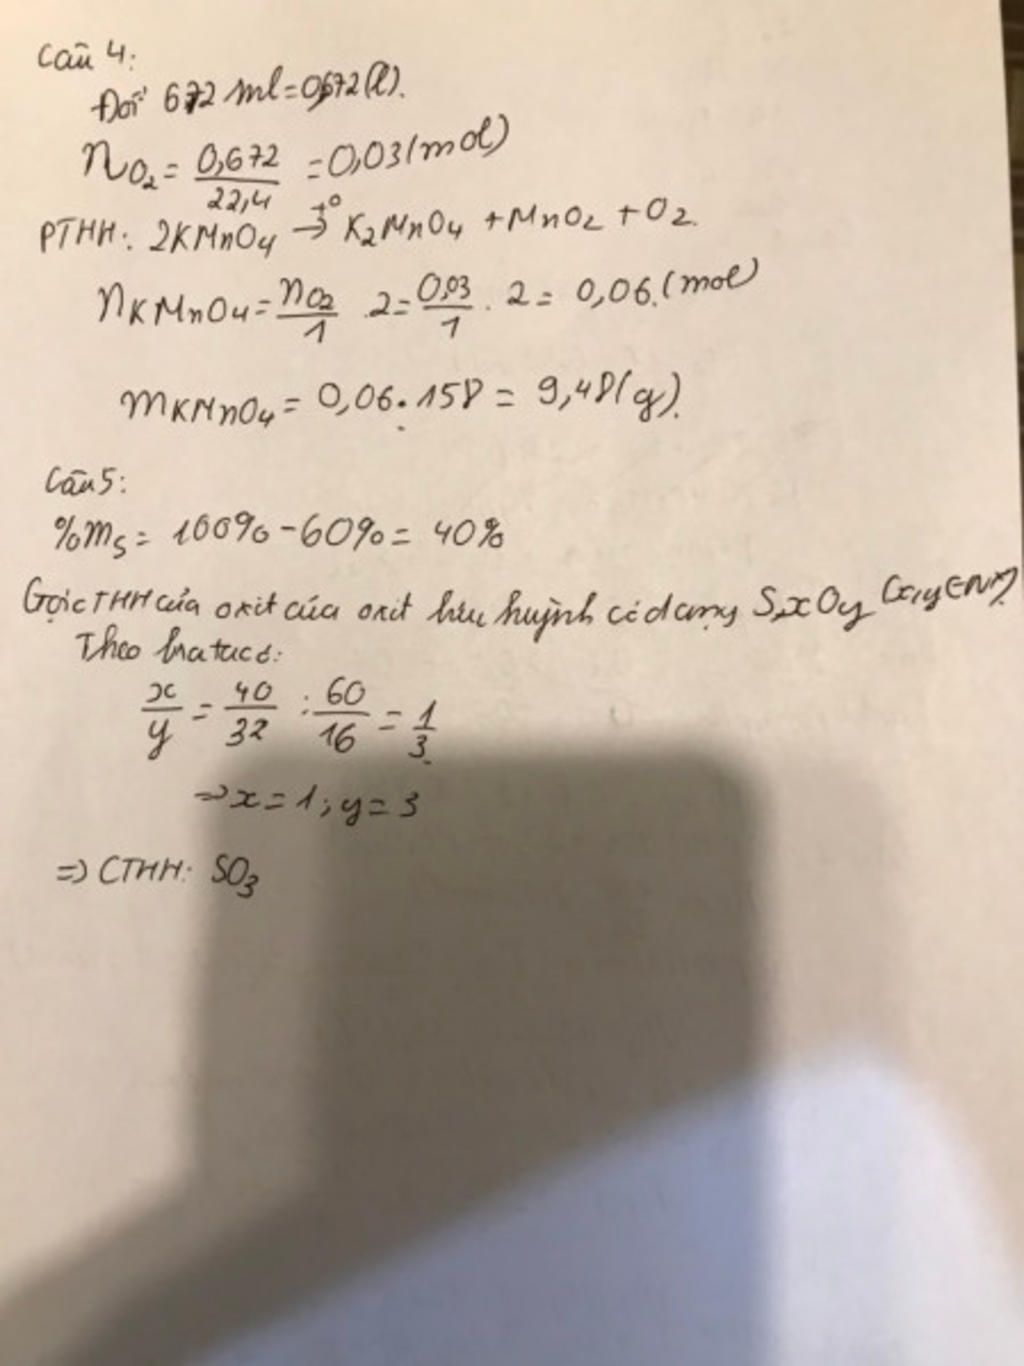 Câu 4:
Đổi 672 ml = 0,672 (l).
nO₂ = 0,672/22,4 = 0,03 (mol)
PTHH: 2KMnO₄ →t° K₂MnO₄ + MnO₂ + O₂.
nKMnO₄ = nO₂/1 . 2 = 0,03/1 . 2 = 0,06. (mol)
mKMnO₄ = 0,06 . 158 = 9,48 (g).
Câu 5:
%mS = 100% - 60% = 40%
Gọi CTHH của oxit của oxit lưu huỳnh có dạng SxOy (x,y ∈ N*).
Theo bra ta có:
x/y = 40/32 : 60/16 = 1/3.
⇒ x = 1; y = 3
⇒ CTHH: SO₃